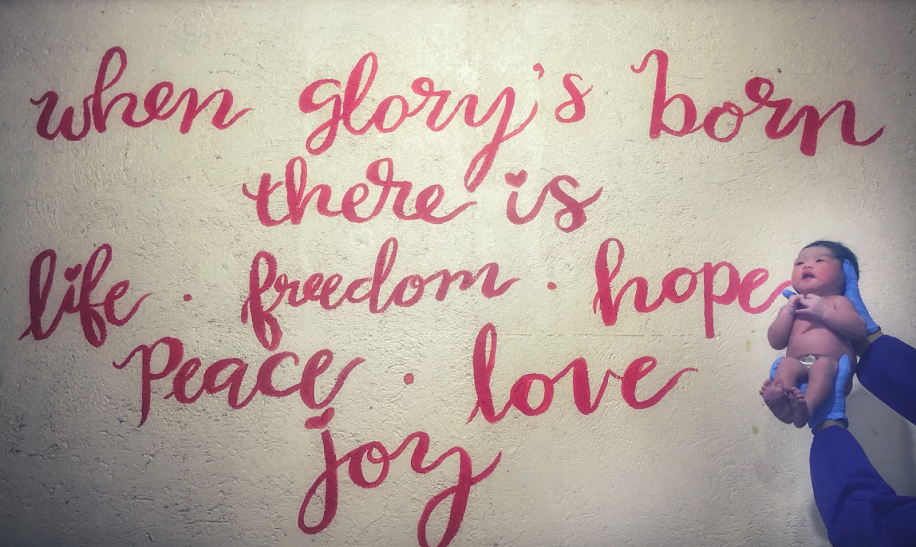 when glory's born
there is
life · freedom · hope
Peace · love
joy